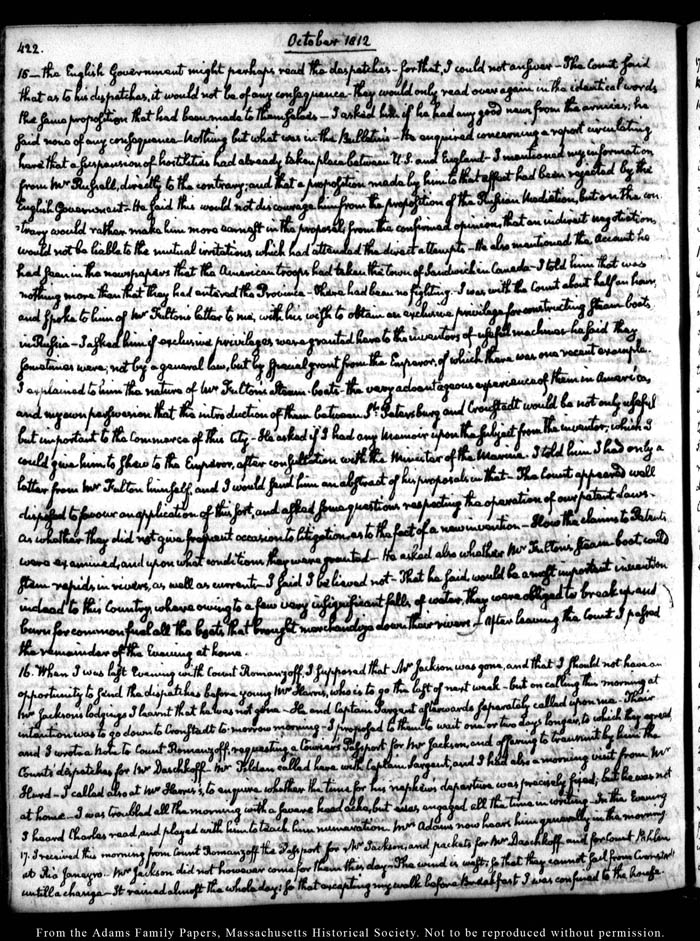 422.
October 1812
15 — the English Government might perhaps read the despatches — for that, I could not answer — The Count said
that as to his dispatches, it would not be of any consequence — they would only read over again in the identical words
the same proposition that had been made to themselves — I asked him if he had any good news from the armies; he
said none of any consequence — Nothing but what was in the Bulletin — He enquired concerning a report circulating
here that a suspension of hostilities had already taken place between U.S. and England — I mentioned my information
from Mr Russell, directly to the contrary; and that a proposition made by him to that effect had been rejected by the
English Government — He said this would not discourage him from the proposition of the Russian Mediation, but on the con-
trary would rather make him more earnest in the proposal, from the confirmed opinion, that an indirect negotiation,
would not be liable to the mutual irritations which had attended the direct attempts — He also mentioned the account he
had seen in the newspapers that the American troops had taken the town of Sandwich in Canada — I told him that was
nothing more than that they had entered the Province — There had been no fighting — I was with the Count about half an hour,
and spoke to him of Mr Fulton's letter to me, with his wish to obtain an exclusive privilege for constructing Steam-boats
in Russia — I asked him if exclusive privileges were granted here to the inventors of useful machines — he said they
sometimes were; not by a general law, but by special grant from the Emperor, of which there was one recent example.
I explained to him the nature of Mr Fulton's Steam-boats — the very advantageous experience of them in America,
and my own persuasion that the introduction of them between St. Petersburg and Cronstadt would be not only useful
but important to the commerce of this City — He asked if I had any Memoir upon the subject from the inventor, which I
could give him to shew to the Emperor, after consultation with the Minister of the Marine. I told him I had only a
letter from Mr Fulton himself, and I would send him an abstract of his proposals in that — The Count appeared well
disposed to favour an application of this sort, and asked some questions respecting the operation of our patent laws —
As whether they did not give frequent occasion to litigation, as to the fact of a new invention — How the claims to Patents
were examined, and upon what conditions they were granted — He asked also whether Mr Fulton's Steam-boat, could
stem rapids in rivers, as well as currents — I said I believed not — That he said, would be a most important invention
indeed to this Country, where owing to a few very insignificant falls of water, they were obliged to break up and
burn for common fuel all the boats that brought merchandize down their rivers — After leaving the Count I passed
the remainder of the Evening at home.
16. When I was last Evening with Count Romanzoff, I supposed that Mr Jackson was gone, and that I should not have an
opportunity to send the dispatches before young Mr Harris, who is to go the last of next week — but on calling this morning at
Mr Jackson's lodgings I learnt that he was not gone — He and Captain Sargent afterwards separately called upon me — Their
intention was to go down to Cronstadt to-morrow morning — I proposed to them to wait one or two days longer, to which they agreed
and I wrote a Note to Count Romanzoff, requesting a Courier's Passport for Mr Jackson, and offering to transmit by him the
Count's dispatches for Mr Daschkoff. Mr Feldan called here with Captain Sargent, and I had also a morning visit from Mr
Hurd — I called also at Mr Harris's, to enquire whether the time for his nephew's departure was precisely fixed; but he was not
at home — I was troubled all the morning with a severe head ache, but was engaged all the time in writing — In the Evening
I heard Charles read, and played with him to teach him numeration. Mrs Adams now hears him generally in the morning
17. I received this morning from Count Romanzoff the Passport for Mr Jackson, and packets for Mr Daschkoff, and for Count Pahlen
at Rio Janeyro. Mr Jackson did not however come for them this day — The wind is west; so that they cannot sail from Cronstadt
until a change — It rained almost the whole day; so that excepting my walk before Breakfast I was confined to the house.
From the Adams Family Papers, Massachusetts Historical Society. Not to be reproduced without permission.